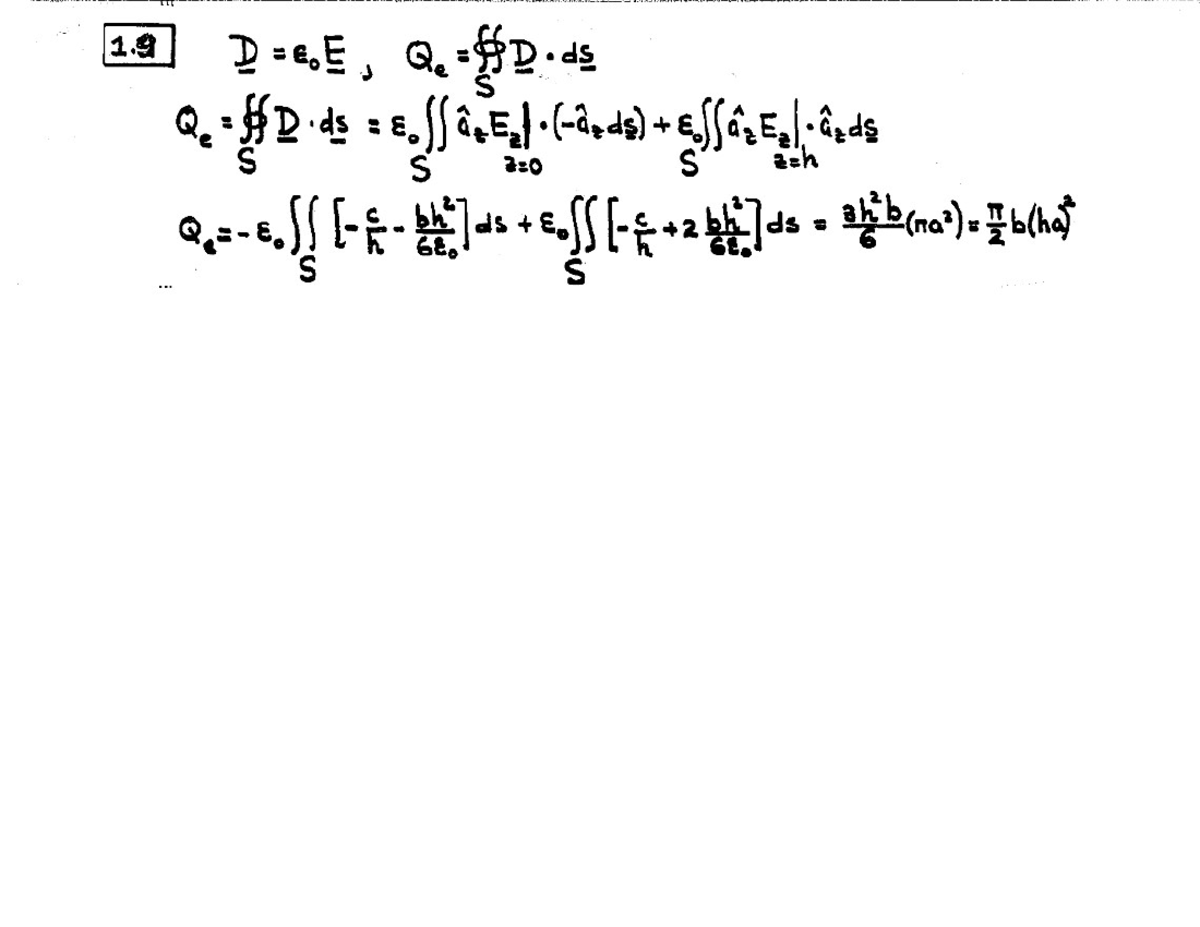 1.9 D = ε₀E, Qₑ = ∯_S D · ds
Qₑ = ∯_S D · ds = ε₀∬_S â_z E_z|_{z=0} · (-â_z ds) + ε₀∬_S â_z E_z|_{z=h} · â_z ds
Qₑ = -ε₀∬_S [-c/h - bh²/6ε₀] ds + ε₀∬_S [-c/h + 2 bh²/6ε₀] ds = 3h²b/6 (πa²) = π/2 b(ha)²